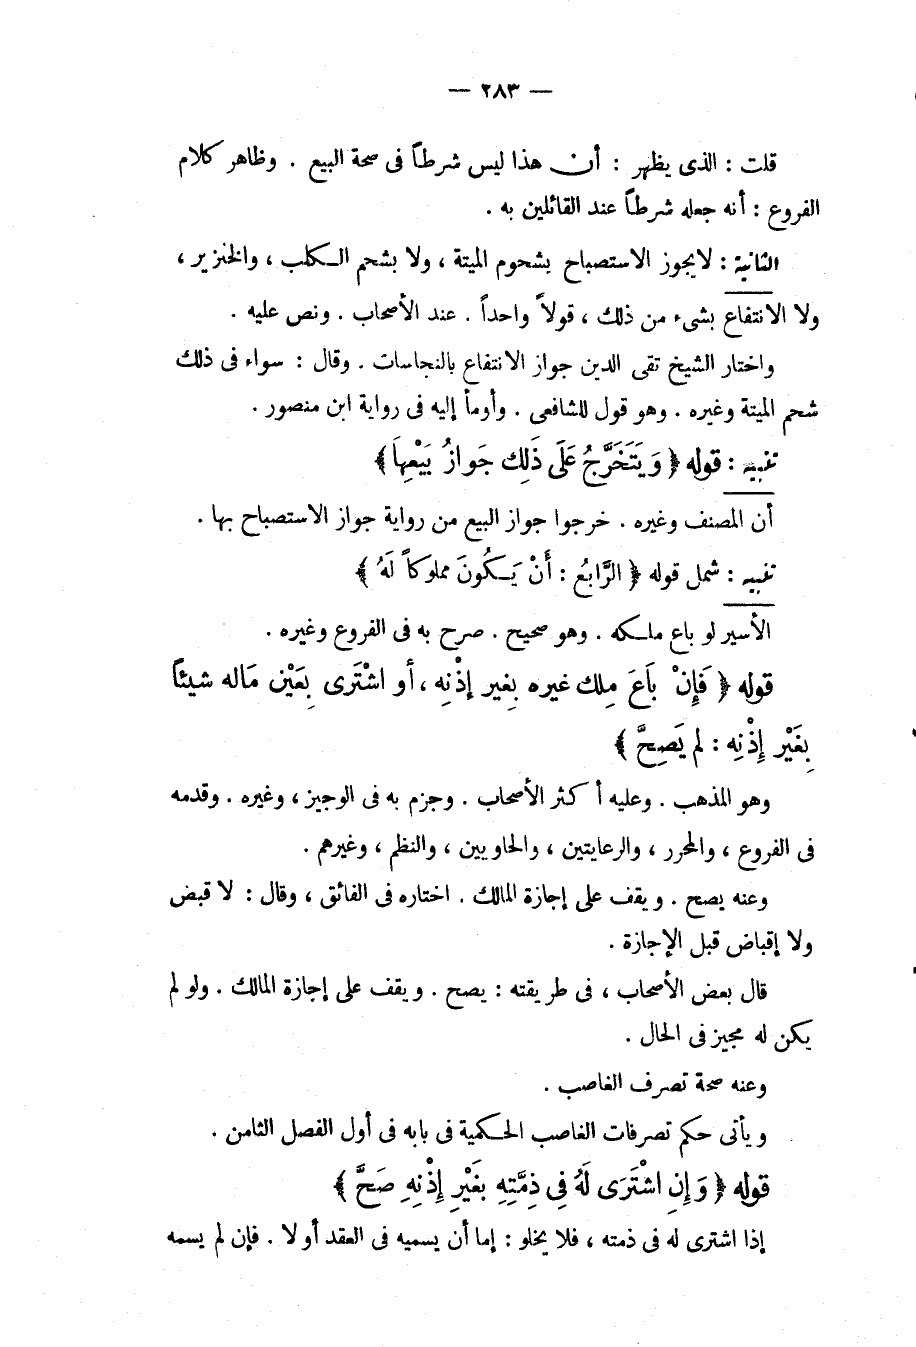 — ٢٨٣ —
قلت : الذى يظهر : أن هذا ليس شرطاً فى صحة البيع . وظاهر كلام
الفروع : أنه جعله شرطاً عند القائلين به .
الثانية : لايجوز الاستصباح بشحوم الميتة ، ولا بشحم الكلب ، والخنزير ،
ولا الانتفاع بشىء من ذلك ، قولاً واحداً . عند الأصحاب . ونص عليه .
واختار الشيخ تقى الدين جواز الانتفاع بالنجاسات . وقال : سواء فى ذلك
شحم الميتة وغيره . وهو قول للشافعى . وأومأ إليه فى رواية ابن منصور .
تنبيه : قوله ﴿ وَيَتَخَرَّجُ عَلَى ذَلِك جَوازُ بَيْعِهاَ ﴾
أن المصنف وغيره . خرجوا جواز البيع من رواية جواز الاستصباح بها .
تنبيه : شمل قوله ﴿ الرَّابعُ : أَنْ يَكُونَ مملوكاً لَهُ ﴾
الأسير لو باع ملكه . وهو صحيح . صرح به فى الفروع وغيره .
قوله ﴿ فَإِنْ باَعَ مِلك غيره بِغير إذْنِه ، أو اشْتَرى بِعَيْن مَاله شيئاً
بِغَيْر إِذْنِه : لم يَصِحَّ ﴾
وهو المذهب . وعليه أكثر الأصحاب . وجزم به فى الوجيز ، وغيره . وقدمه
فى الفروع ، والمحرر ، والرعايتين ، والحاويين ، والنظم ، وغيرهم .
وعنه يصح . ويقف على إجازة المالك . اختاره فى الفائق ، وقال : لا قبض
ولا إقباض قبل الإجازة .
قال بعض الأصحاب ، فى طريقته : يصح . ويقف على إجازة المالك . ولو لم
يكن له مجيز فى الحال .
وعنه صحة تصرف الغاصب .
ويأتى حكم تصرفات الغاصب الحكمية فى بابه فى أول الفصل الثامن .
قوله ﴿ وَإِنِ اشْتَرَى لَهُ فِى ذِمَّتِهِ بغَيْرِ إِذْنِهِ صَحَّ ﴾
إذا اشترى له فى ذمته ، فلا يخلو : إما أن يسميه فى العقد أو لا . فإن لم يسمه